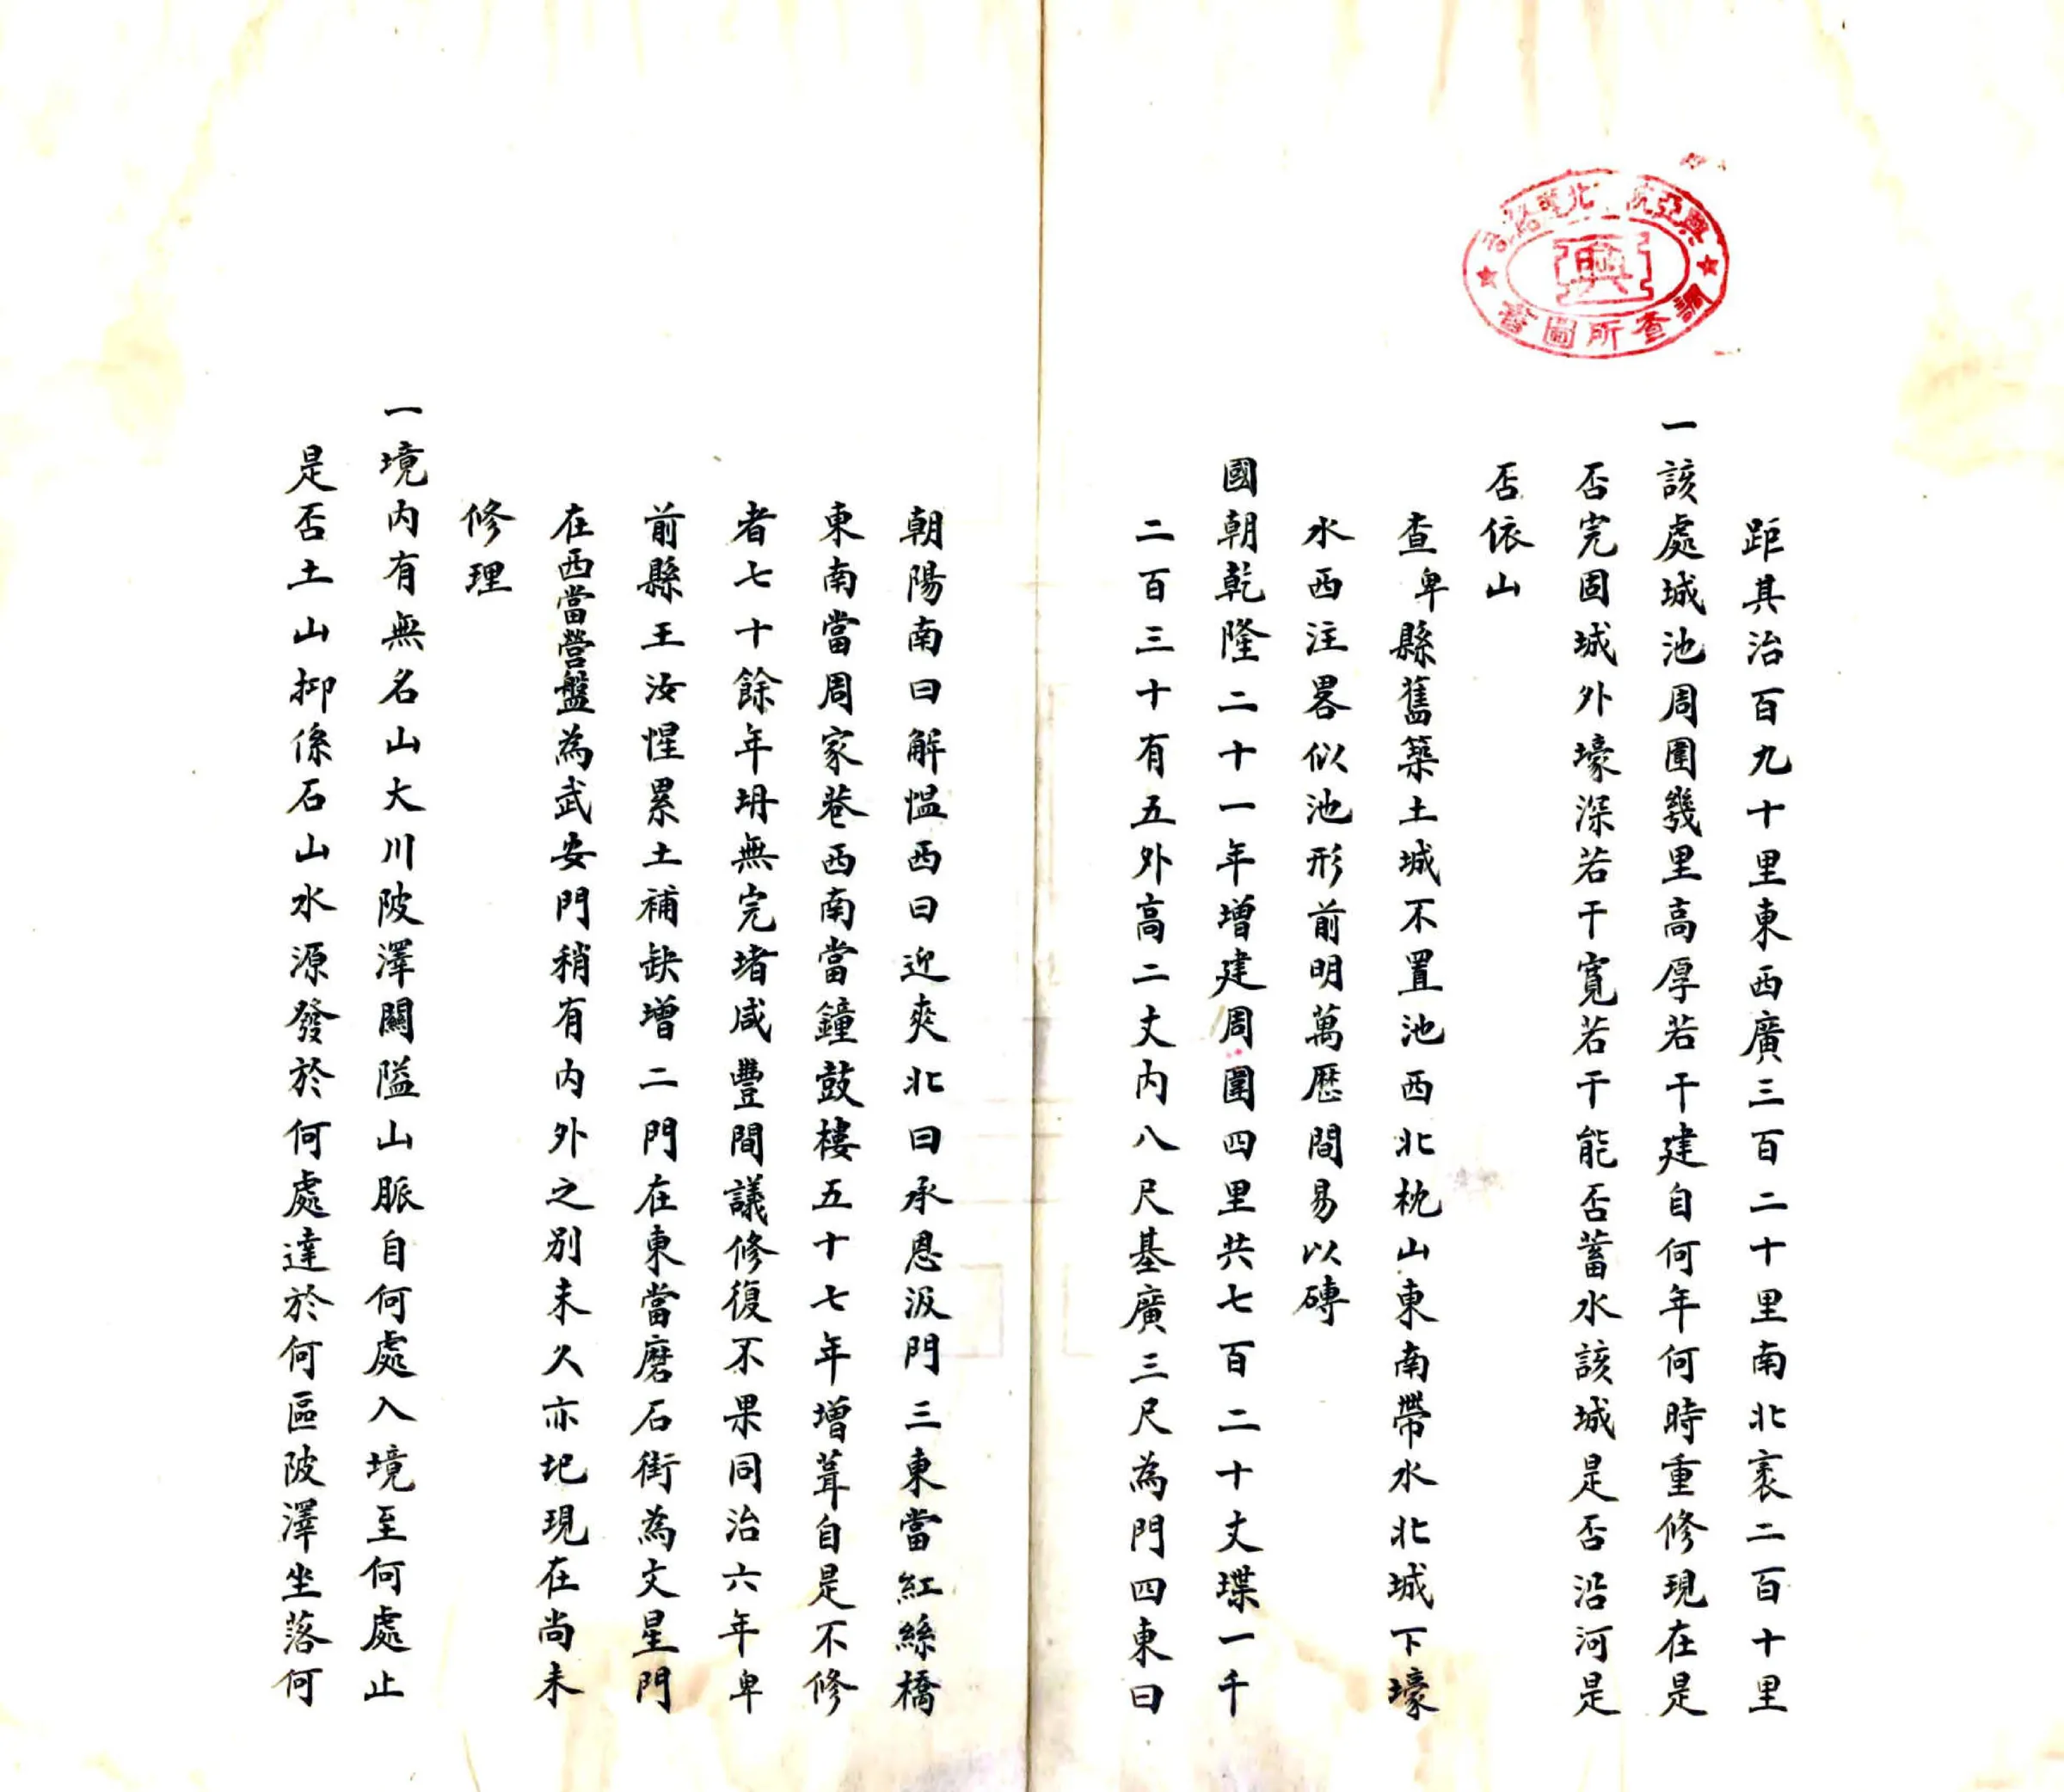 興亞院華北連絡部
興
調查所圖書
距其治百九十里東西廣三百二十里南北袤二百十里
一該處城池周圍幾里高厚若干建自何年何時重修現在是
否完固城外壕深若干寬若干能否蓄水該城是否沿河是
否依山
查卑縣舊築土城不置池西北枕山東南帶水北城下壕
水西注畧似池形前明萬歷間易以磚
國朝乾隆二十一年增建周圍四里共七百二十丈堞一千
二百三十有五外高二丈內八尺基廣三尺為門四東曰
朝陽南曰解愠西曰迎爽北曰承恩汲門三東當紅絲橋
東南當周家巷西南當鐘鼓樓五十七年增葺自是不修
者七十餘年坍無完堵咸豐間議修復不果同治六年卑
前縣王汝惺累土補缺增二門在東當磨石街為文星門
在西當營盤為武安門稍有內外之別未久亦圮現在尚未
修理
一境內有無名山大川陂澤關隘山脈自何處入境至何處止
是否土山抑係石山水源發於何處達於何區陂澤坐落何